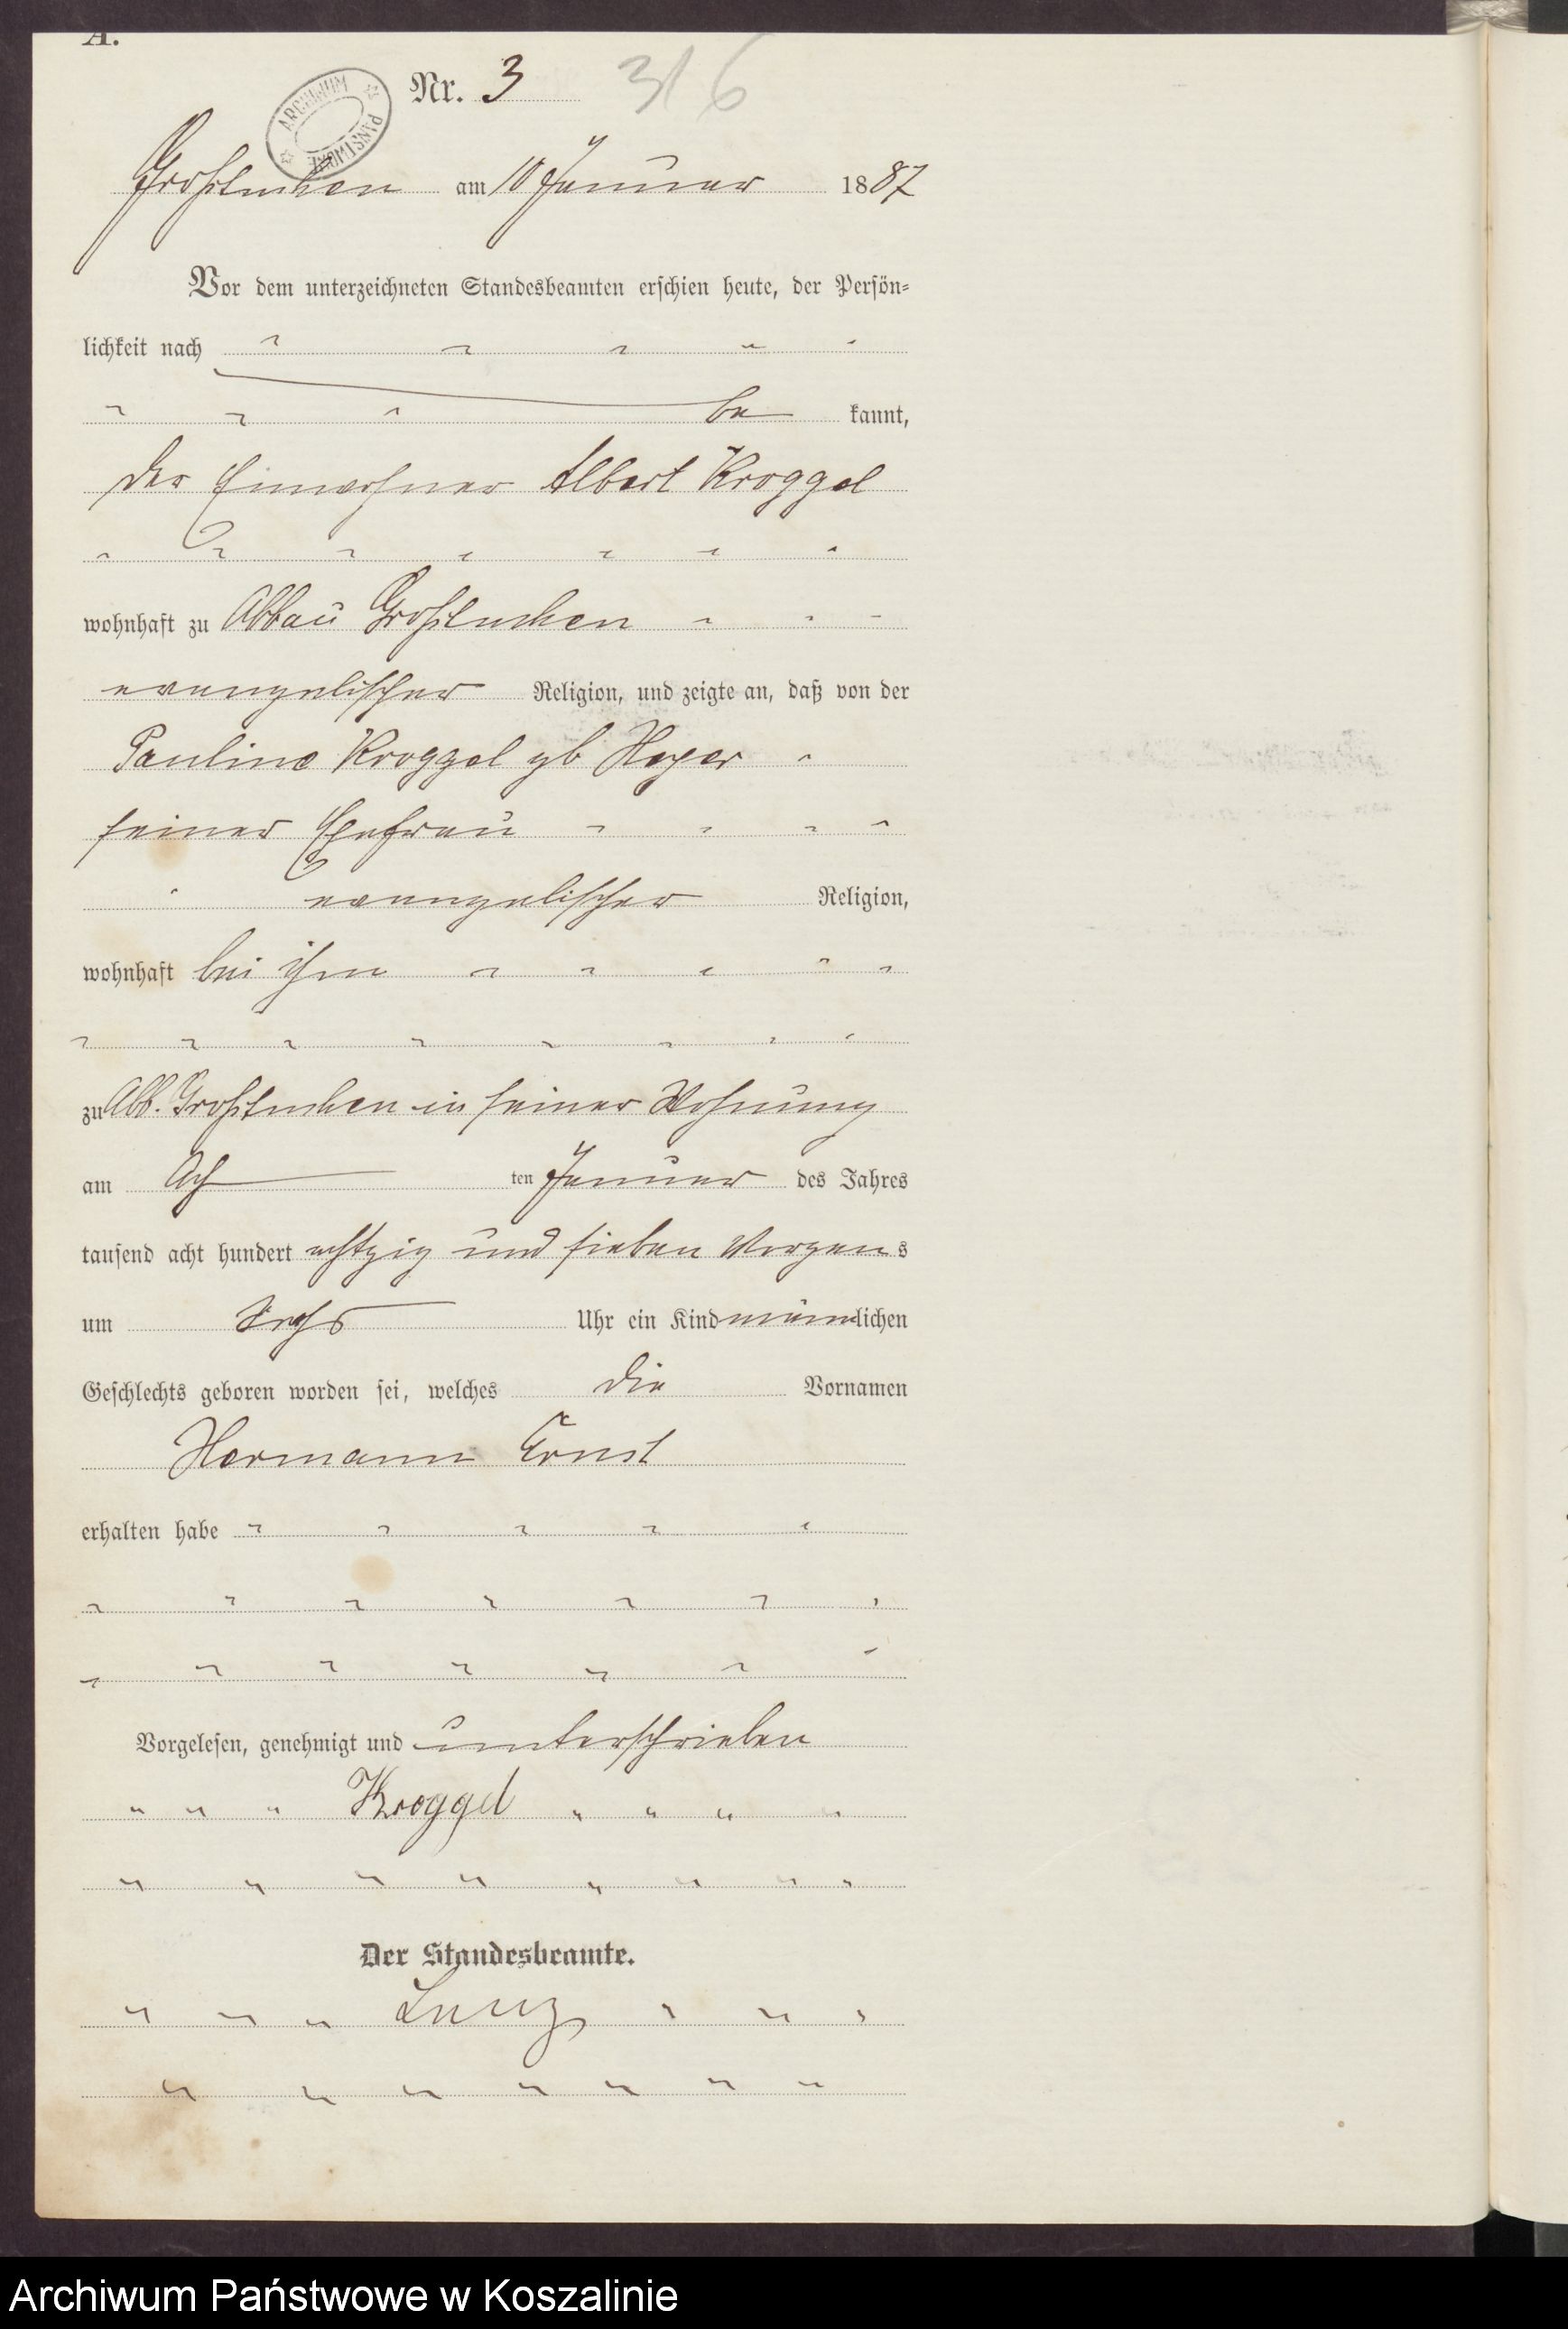 A.
Nr. 3 316
ARCHIWUM PAŃSTWOWE
Großtuchen am 10 Januar 1887
Vor dem unterzeichneten Standesbeamten erschien heute, der Persön-
lichkeit nach
be kannt,
der Einwohner Albert Kroggel
wohnhaft zu Abbau Großtuchen
evangelischer Religion, und zeigte an, daß von der
Pauline Kroggel gb Heyer
seiner Ehefrau
evangelischer Religion,
wohnhaft bei ihm
zu Abb. Großtuchen in seiner Wohnung
am Ach ten Januar des Jahres
tausend acht hundert achtzig und sieben Morgens
um Sechs Uhr ein Kind männlichen
Geschlechts geboren worden sei, welches die Vornamen
Hermann Ernst
erhalten habe
Vorgelesen, genehmigt und unterschrieben
Kroggel
Der Standesbeamte.
Archiwum Państwowe w Koszalinie